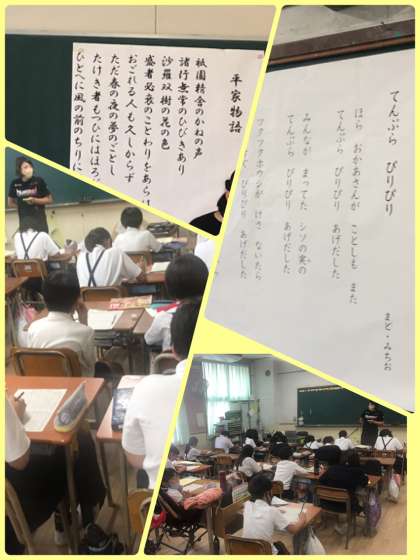 平家物語
祇園精舎のかねの声
諸行無常のひびきあり
沙羅双樹の花の色
盛者必衰のことわりをあら
おごれる人も久しからず
ただ春の夜の夢のごとし
たけき者もつひにはほろ
ひとへに風の前のちりに
てんぷら ぴりぴり
まど・みちお
ほら おかあさんが ことしも また
てんぷら ぴりぴり あげだした
みんなが まってた シソの実の
てんぷら ぴりぴり あげだした
ツクツクホウシが けさ ないたら
ぴりぴり あげだした